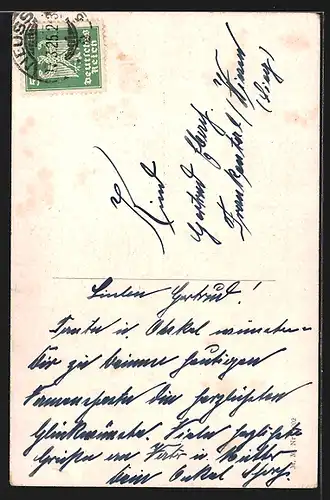 NEUSS
5
Deutsches
Reich
Kind
Gertrud
Frankental / Wissen
(Sieg)
Lieben Gertrud!
Tante u. Onkel wünschen
Dir zu Deinem heutigen
Namensfeste die herzlichsten
Glückwünsche. Viele herzliche
Grüße an Vater u. Mutter
Dein Onkel